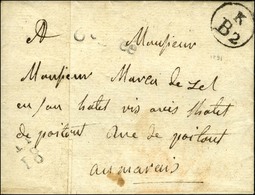 K
B2
A Monsieur
Monsieur Marca de Lel
en son hotel vis avis lhotel
de poitou Rue de poitou
au marais